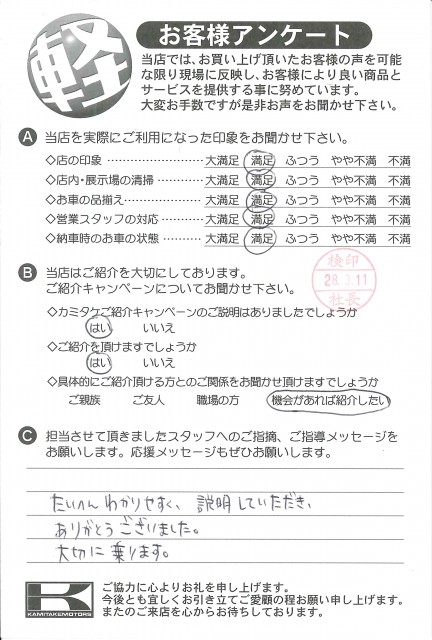 軽
お客様アンケート
当店では、お買い上げ頂いたお客様の声を可能
な限り現場に反映し、お客様により良い商品と
サービスを提供する事に努めています。
大変お手数ですが是非お声をお聞かせ下さい。
A 当店を実際にご利用になった印象をお聞かせ下さい。
◇店の印象 ………………… 大満足 満足 ふつう やや不満 不満
◇店内・展示場の清掃 ………… 大満足 満足 ふつう やや不満 不満
◇お車の品揃え ……………… 大満足 満足 ふつう やや不満 不満
◇営業スタッフの対応 ………… 大満足 満足 ふつう やや不満 不満
◇納車時のお車の状態 ………… 大満足 満足 ふつう やや不満 不満
検印
28.3.11
社長
B 当店はご紹介を大切にしております。
ご紹介キャンペーンについてお聞かせ下さい。
◇カミタケご紹介キャンペーンのご説明はありましたでしょうか
はい いいえ
◇ご紹介を頂けますでしょうか
はい いいえ
◇具体的にご紹介頂ける方とのご関係をお聞かせ頂けますでしょうか
ご親族 ご友人 職場の方 機会があれば紹介したい
C 担当させて頂きましたスタッフへのご指摘、ご指導メッセージを
お願いします。応援メッセージもぜひお願いします。
たいへんわかりやすく、説明していただき、
ありがとうございました。
大切に乗ります。
K
KAMITAKEMOTORS
ご協力に心よりお礼を申し上げます。
今後とも宜しくお引き立てご愛顧の程お願い申し上げます。
またのご来店を心からお待ちしております。